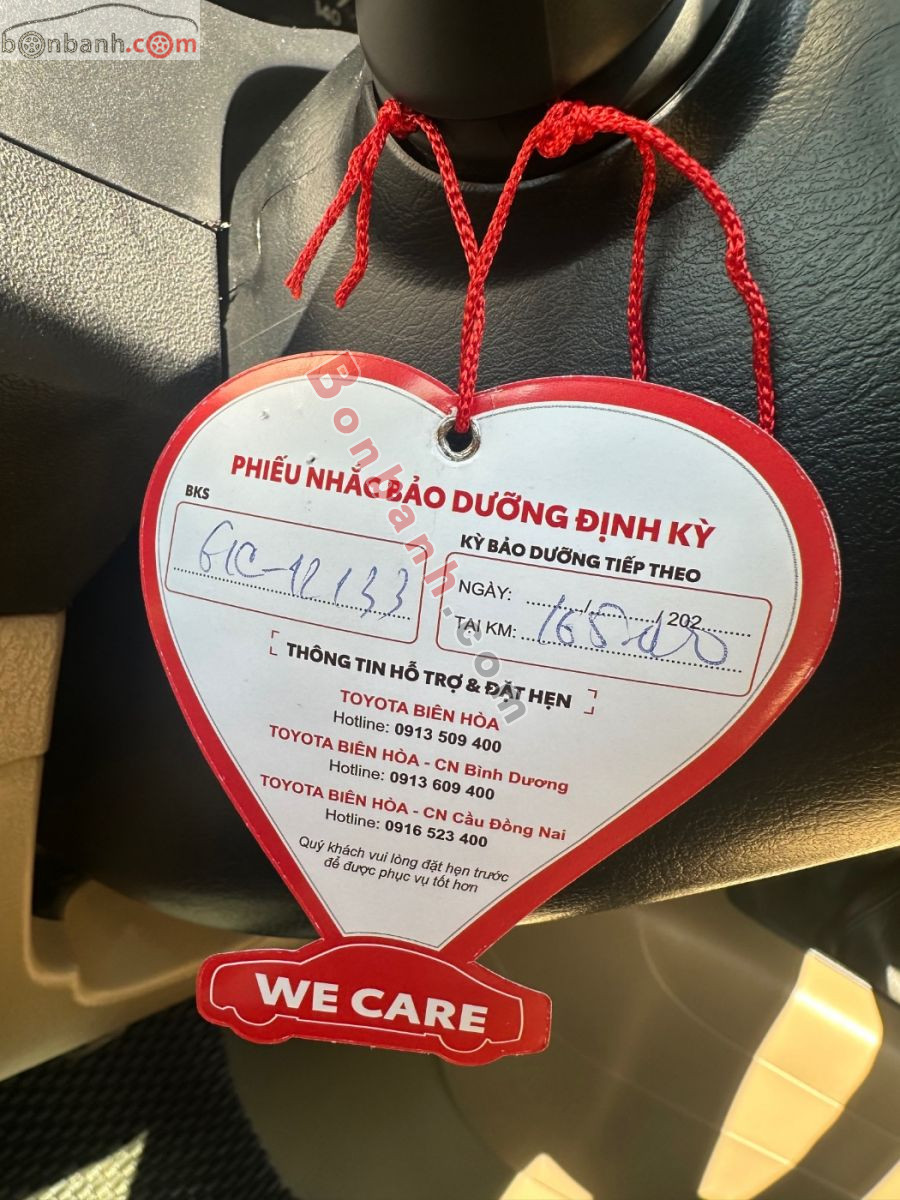 bonbanh.com
PHIẾU NHẮC BẢO DƯỠNG ĐỊNH KỲ
BKS
61C-12133
KỲ BẢO DƯỠNG TIẾP THEO
NGÀY: ......../......../ 202........
TẠI KM:
THÔNG TIN HỖ TRỢ & ĐẶT HẸN
TOYOTA BIÊN HÒA
Hotline: 0913 509 400
TOYOTA BIÊN HÒA - CN Bình Dương
Hotline: 0913 609 400
TOYOTA BIÊN HÒA - CN Cầu Đồng Nai
Hotline: 0916 523 400
Quý khách vui lòng đặt hẹn trước
để được phục vụ tốt hơn
WE CARE
Bonbanh.com